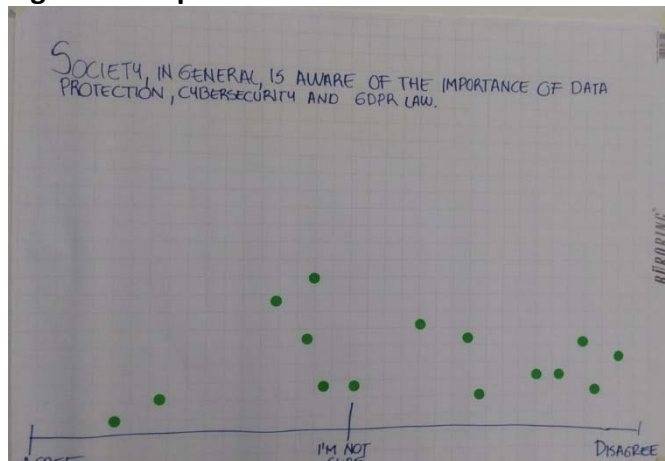 SOCIETY, IN GENERAL, IS AWARE OF THE IMPORTANCE OF DATA
PROTECTION, CYBERSECURITY AND GDPR LAW.
BÜRORING
AGREE
I'M NOT
SURE
DISAGREE